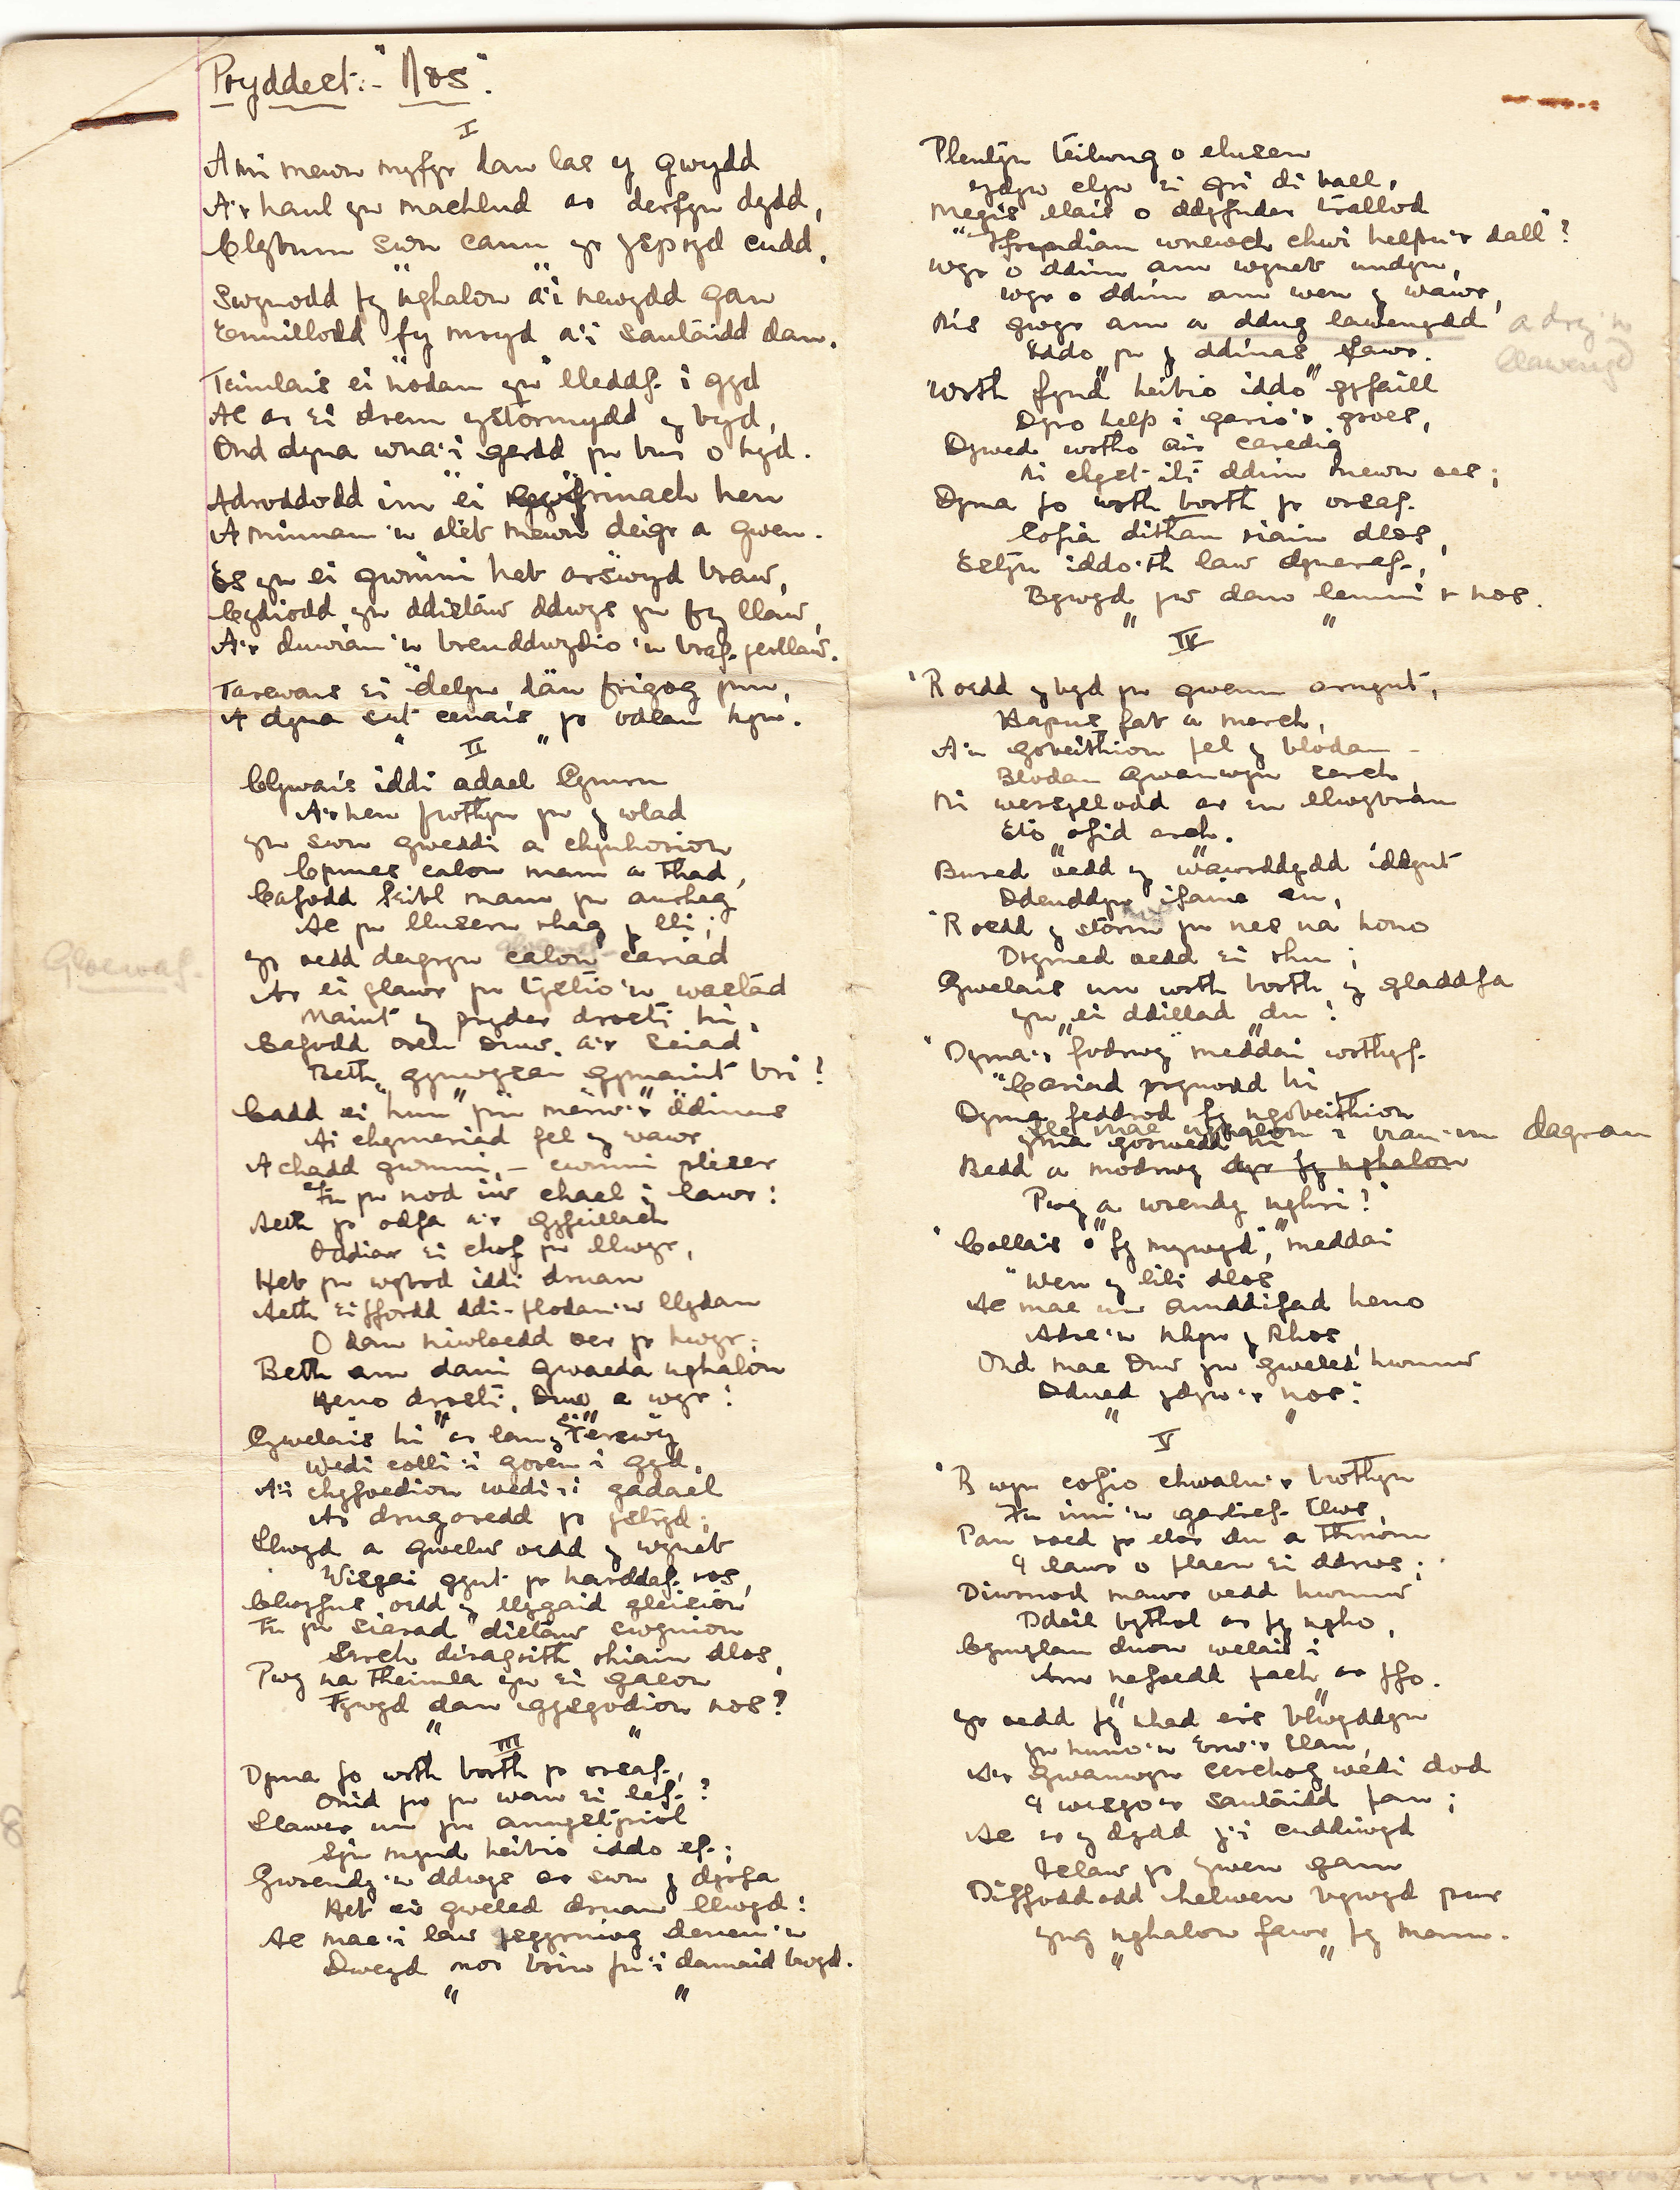 Pryddest:- "Nos".
I
A mi mewn myfyr dan las y gwŷdd
A'r haul yn machlud ar derfyn dydd,
Clybum swn canu yr yspryd cudd,
Swynodd fy nghalon a'i newydd gan
Ennillodd fy mryd a'i santaidd dan.
Teimlais ei nodau yn lleddf i gyd
Ac ar ei drem ystormydd y byd,
Ond dyna wna'i gerdd yn bur o hyd.
Adroddodd im ei gyfrinach hen
A minnau'n ateb mewn deigr a gwen.
Es yn ei gwmni heb arswyd braw,
Cydiodd yn ddistaw ddwys yn fy llaw,
A'r duwiau'n breuddwydio'n braf gerllaw.
Tarewais ei delyn dan frigog pren,
A dyna sut cenais yr odlau hyn.
" II "
Clywais iddi adael Cymru
A'r hen fwthyn yn y wlad
Yn swn gweddi a chynhorion
Cynnes calon mam a thad,
Cafodd Feibl mam yn anrheg
Ac yn llusern rhag y lli;
Yr oedd deigryn calon cariad
gloewaf
Gloewaf
Ar ei glawr yn tystio'n wastad
Maint y pryder drosti hi,
Cafodd oren Duw, a'r seiad
Beth gynwysai gymaint bri?
Cadd ei hun yn merw'r ddinas
Ai chymeriad fel y wawr
A chadd gwmni, – cwmni pleser
Fu yn nod iw chael i lawr:
Aeth yr odfa a'r gyfeillach
Oddiar ei chof yn llwyr,
Heb yn wybod iddi druan
Aeth ei ffordd ddi-flodau'n llydan
O dan niwloedd oer yr hwyr;
Beth am dani gwaeda nghalon
Heno drosti, Duw a wyr!
Gwelais hi ar lan y Ferswy
Wedi colli'i goreu i gyd,
A'i chyfoedion wedi'i gadael
Ar drugaredd yr ystryd;
Llwyd a gwelw oedd y wyneb
Wisgai gynt yr harddaf ros,
Clwyfus oedd y llygaid gleision
Fu yn siarad distaw swynion
Serch diragrith rhiain dlos,
Pwy na theimla yn ei galon
Fywyd dan gysgodion nos?
" "
III
Dyma fo wrth borth yr orsaf,
Onid yw yn wan ei lef?
Llawer un yn annystyriol
Sy'n mynd heibio iddo ef;
Gwrendy'n ddwys ar swn y dyrfa
Heb ei gweled druan llwyd:
Ac mae'i law grynedig denau'n
Dweyd mor brin fu'i damaid bwyd.
" "
Plentyn teilwng o elusen
ydyw elyn ei gri di ball,
Megis llais o ddyfnder trallod
"Ffryndiau wnewch chwi helpu'r dall"?
Wyr o ddim am wyneb undyn,
Wyr o ddim am wen y wawr,
Nis gwyr am a ddug lawenydd
a dry'n
llawenydd
Iddo yn y ddinas fawr.
Wrth fynd heibio iddo gyfaill
Dyro help i gario'r groes,
Dywed wrtho air caredig
Ni chyst iti ddim mewn oes;
Dyma fo wrth borth yr orsaf
Cofia dithau riain dlos,
Estyn iddo'th law dyneraf,
Bywyd yw dan lenni'r nos.
" "
IV
'Roedd y byd yn gwenu arnynt,
Hapus fab a merch,
A'u gobeithion fel y blodau –
Blodau gwanwyn serch,
Ni wersyllodd ar eu llwybrau
Eto ofid erch.
Bured oedd y wawrddydd iddynt
Ddeuddyn ifainc cu,
'Roedd y storm yn nes na hono
Drymed oedd ei rhu;
Gwelais un wrth borth y gladdfa
Yn ei ddillad du!
"Dyma'r fodrwy" meddai wrthyf
"Cariad prynodd hi
Dyma feddrod fy ngobeithion
Yma gorwedd hi
lle mae nghalon i a'm dagrau
Bedd a modrwy dyr fy nghalon
Pwy a wrendy nghri?"
"Collais fy mywyd," meddai
"Wen y lili dlos
Ac mae un amddifad heno
Adre'n nhyw y Rhos,
Ond mae Duw yn gweled hwnnw
Ddued ydyw'r nos."
" "
V
'Rwyn cofio chwalu'r bwthyn
Fu imi'n gartref tlws,
Pan roed yr elor du a thrwm
I lawr o flaen ei ddrws;
Diwrnod mawr oedd hwnnw
Ddeil bythol ar fy ngho,
Cymylau duon welais i
A'm nefoedd fach ar ffo.
Yr oedd fy nhad ers blwyddyn
Yn huno'n Erw'r Llan,
A'r Gwanwyn serchog wedi dod
I wisgo'r santaidd fan;
Ac ar y dydd y'i cuddiwyd
Islaw yr ywen gam
Diffoddodd helwen bywyd pur
Yng nghalon fawr fy mam.
" "